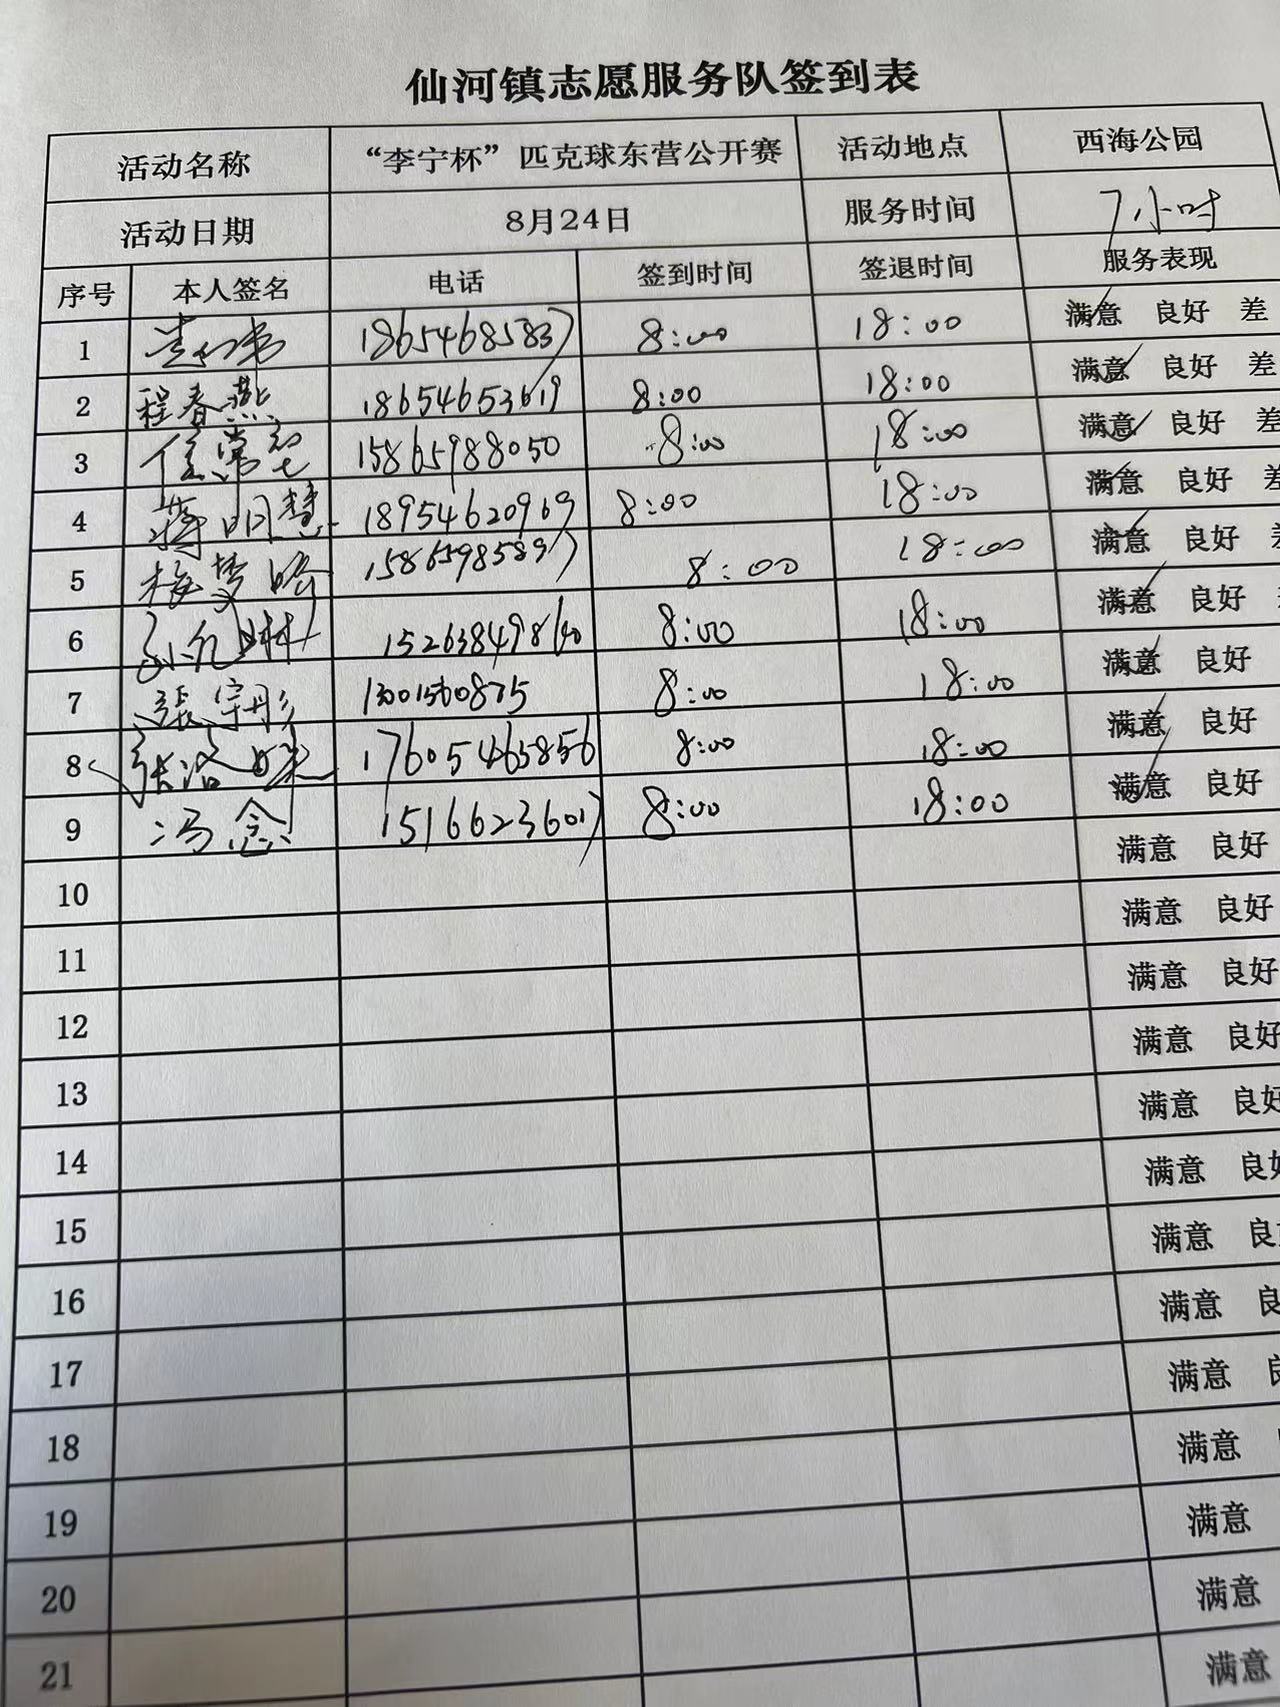 仙河镇志愿服务队签到表
活动名称 “李宁杯”匹克球东营公开赛 活动地点 西海公园
活动日期 8月24日 服务时间 7小时
序号 本人签名 电话 签到时间 签退时间 服务表现
1 18654685837 8:00 18:00 满意 良好 差
2 程春燕 18654653619 8:00 18:00 满意 良好 差
3 15865988050 8:00 18:00 满意 良好 差
4 蒋明慧 18954620969 8:00 18:00 满意 良好 差
5 15865985897 8:00 18:00 满意 良好 差
6 15263849860 8:00 18:00 满意 良好
7 張宇彤 13001560875 8:00 18:00 满意 良好
8 17605465856 8:00 18:00 满意 良好
9 冯念 15166236017 8:00 18:00 满意 良好
10 满意 良好
11 满意 良好
12 满意 良好
13 满意 良好
14 满意 良好
15 满意 良好
16 满意 良
17 满意 良
18 满意
19 满意
20 满意
21 满意